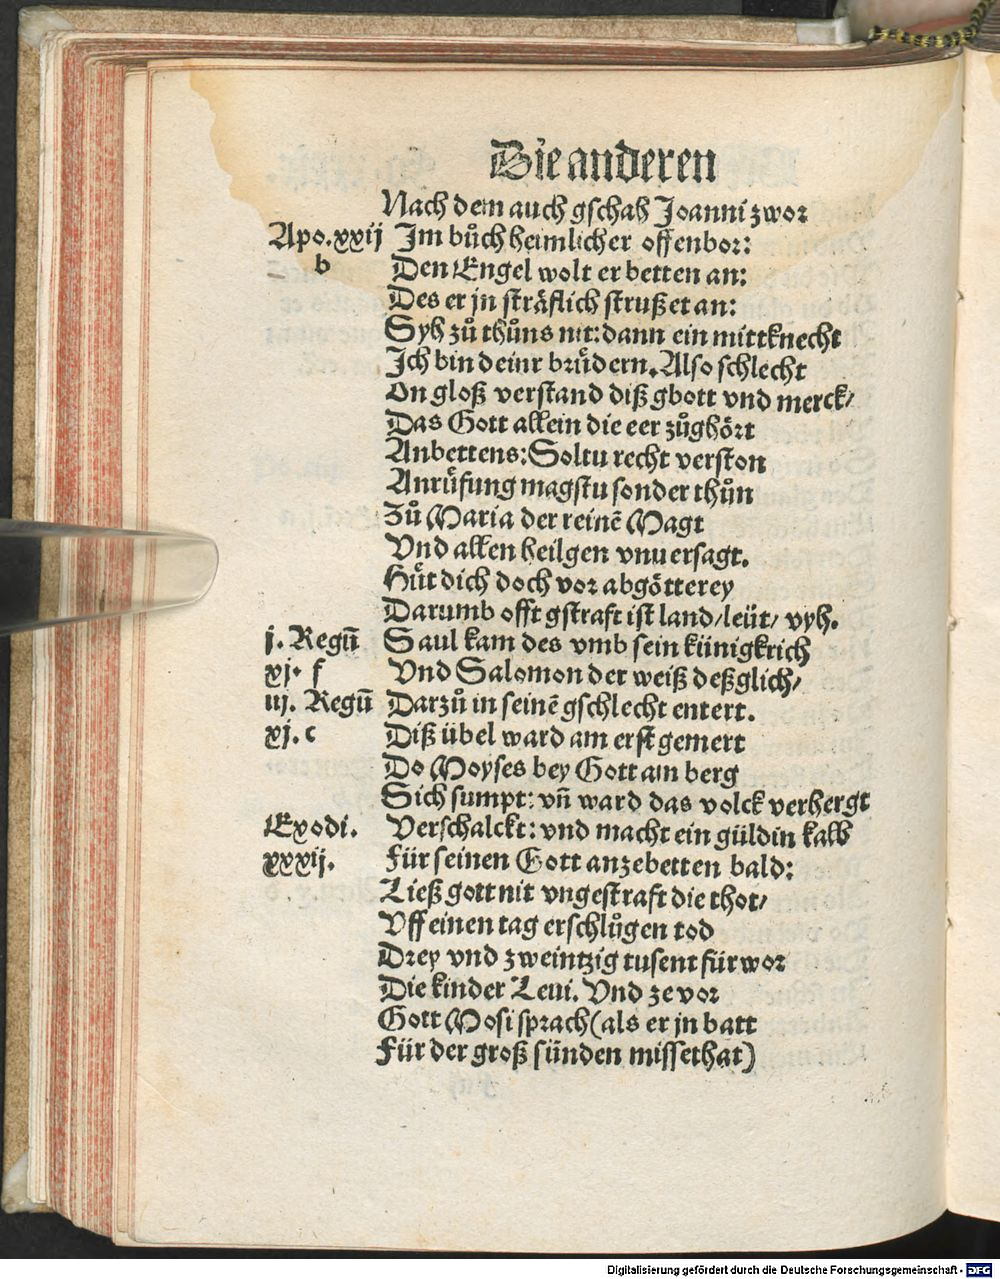 Die anderen
Nach dem auch gschah Joanni zwor
Apo.xxij Im bůch heimlicher offenbor:
b Den Engel wolt er betten an:
Des er jn sträflich strußet an:
Syh zů thůns nit: dann ein mittknecht
Ich bin deinr brüdern. Also schlecht
On gloß verstand diß gbott vnd merck/
Das Gott allein die eer zůghört
Anbettens: Soltu recht verston
Anrüfung magstu sonder thůn
Zů Maria der reinē Magt
Vnd allen heilgen vnuersagt.
Hüt dich doch vor abgötterey
Darumb offt gstraft ist land/leüt/ vyh.
j. Regū Saul kam des vmb sein künigkrich
xj. f Vnd Salomon der weiß deßglich/
iij. Regū Darzů in seinē gschlecht entert.
xj. c Diß übel ward am erst gemert
Do Moyses bey Gott am berg
Sich sumpt: vn̄ ward das volck verhergt
Exodi. Verschalckt: vnd macht ein güldin kalb
xxxij. Für seinen Gott anzebetten bald:
Ließ gott nit vngestraft die thot/
Vff einen tag erschlůgen tod
Drey vnd zweintzig tusent für wor
Die kinder Leui. Vnd ze vor
Gott Mosi sprach (als er jn batt
Für der groß sünden missethat)
Digitalisierung gefördert durch die Deutsche Forschungsgemeinschaft - DFG